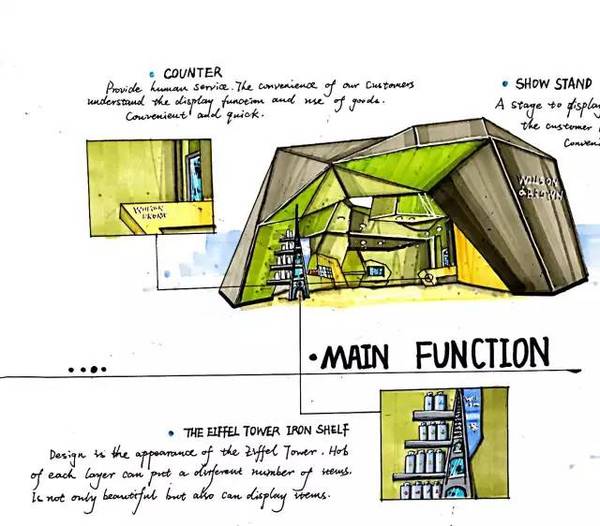 COUNTER
Provide human service. The convenience of our Customers
understand the display function and use of goods.
Convenient and quick.
SHOW STAND
A stage to display
the customer
Conveni
WILSON
WILSON
& BROWN
•MAIN FUNCTION
THE EIFFEL TOWER IRON SHELF
Design is the appearance of the Eiffel Tower. Hob
of each layer can put a different number of items.
Is not only beautiful but also can display items.